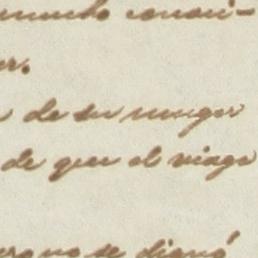 mucho conoci-
er.
de su muger
de que el viage
se dignó